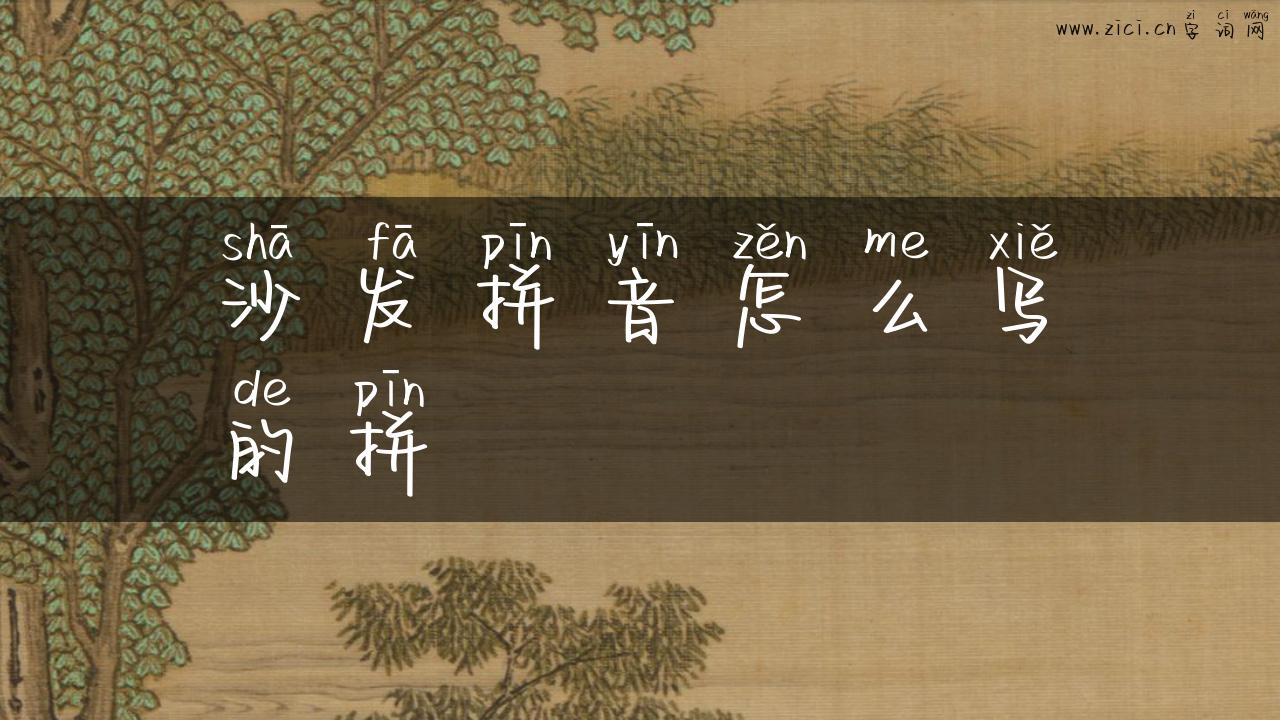 zì cí wǎng
www.zici.cn字词网
shā fā pīn yīn zěn me xiě
沙发拼音怎么写
de pīn
的拼